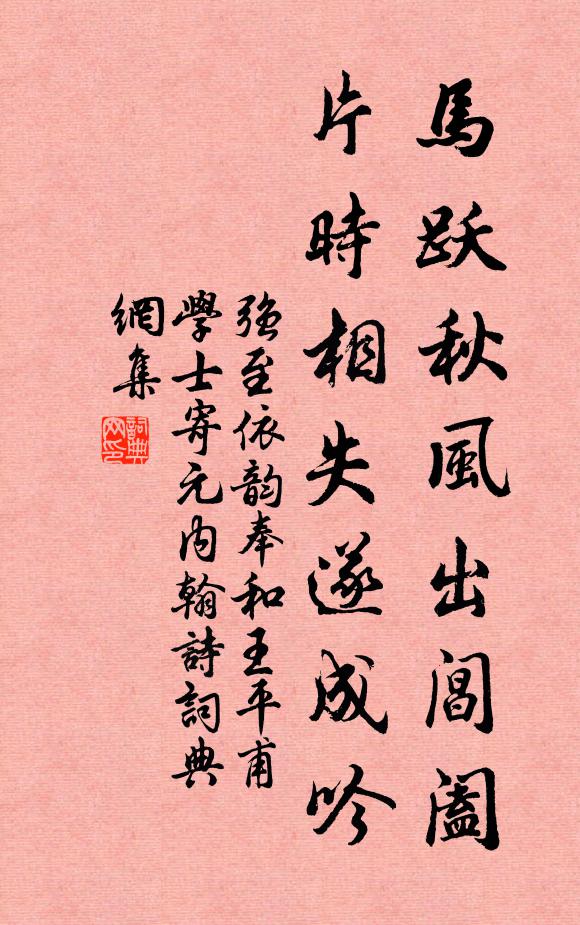 馬跃秋風出閶阖
片時相失遂成吟
强至依韵奉和王平甫
學士寄元内翰詩詞典
網集
詞典
网印